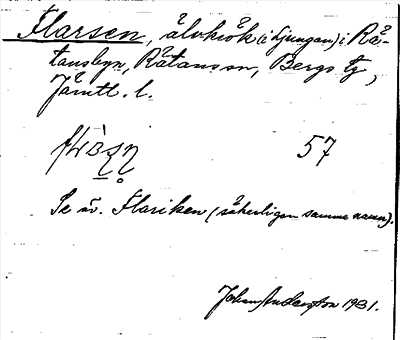 Flarsen, älvkrök (i Ljungan) i Rå-
tansbyn, Råtans sn, Bergs tg,
Jämtl. l.
57
Se äv. Flariken (säkerligen samma namn).
Johan Anderson 1931.